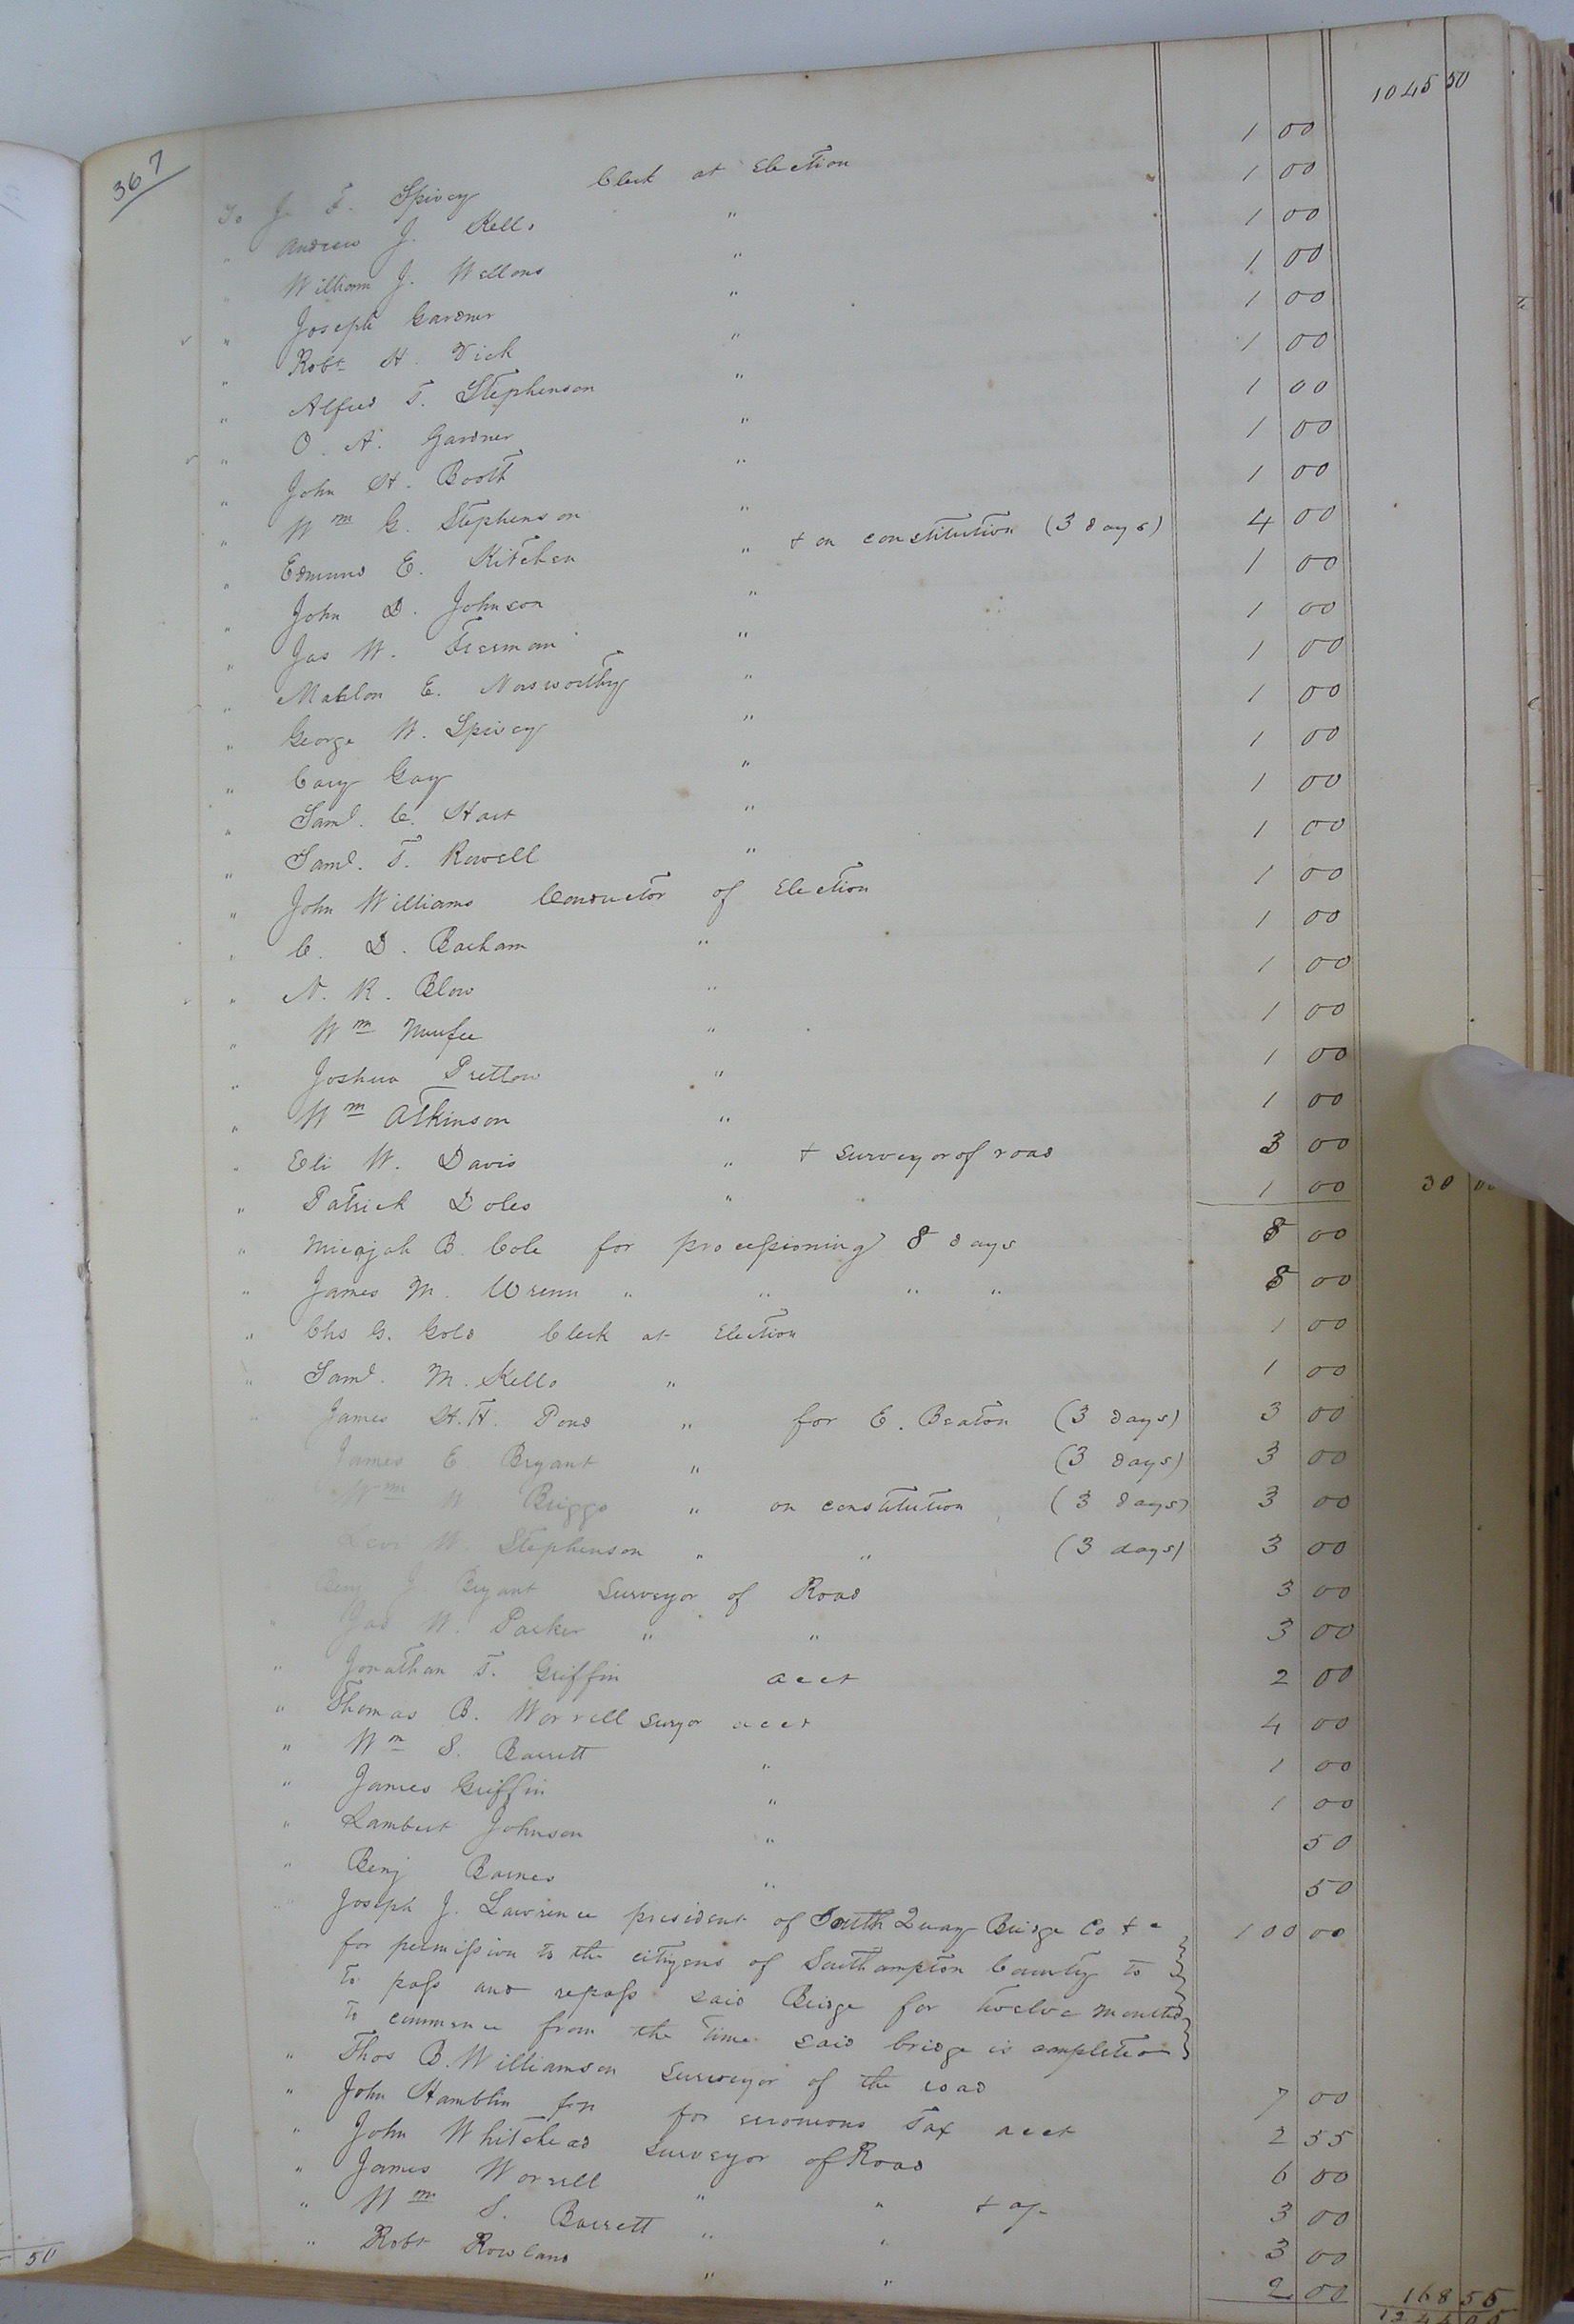 367
1045 50
To J. T. Spivey Clerk at Election 1 00
" Andrew J. Kello " 1 00
" William J. Wellons " 1 00
" Joseph Gardner " 1 00
" Robt H. Vick " 1 00
" Alfred T. Stephenson " 1 00
" O. A. Gardner " 1 00
" John H. Booth " 1 00
" Wm G. Stephenson " 1 00
" Edmund E. Kitchen " + on constitution (3 days) 4 00
" John D. Johnson " 1 00
" Jas W. Freeman " 1 00
" Mahlon E. Norsworthy " 1 00
" George W. Spivey " 1 00
" Cary Gay " 1 00
" Saml. C. Hart " 1 00
" Saml. T. Rowell " 1 00
" John Williams Conductor of Election 1 00
" C. D. Barham " 1 00
" N. R. Blow " 1 00
" Wm " 1 00
" Joshua Pretlow " 1 00
" Wm Atkinson " 1 00
" Eli W. Davis " + surveyor of road 3 00
" Patrick Doles " 1 00 30
" Micajah B. Cole for processioning 8 days 8 00
" James M. Wrenn " " " " 8 00
" Chs G. Gold Clerk at Election 1 00
" Saml. M. Kello " 1 00
" James H. H. Pond " for E. Beaton (3 days) 3 00
James E. Bryant " (3 days) 3 00
" Wm W. Briggs " on constitution (3 days) 3 00
Levi W. Stephenson " " (3 days) 3 00
" Benj J Bryant Surveyor of Road 3 00
" Jas W. Parker " " 3 00
" Jonathan T. Griffin acct 2 00
" Thomas B. Worrell suryor acct 4 00
" Wm S. Barrett " 1 00
" James Griffin " 1 00
" Lambert Johnson " 50
" Benj Barnes " 50
Joseph J. Lawrence president of South Quay Bridge Co + c 100 00
for permission to the citizens of Southampton County to
to pass and repass said Bridge for twelve months
to commence from the time said bridge is completed
" Thos B. Williamson surveyor of the road 7 00
" John Hamblin for for erroneous Tax acct 2 55
" John Whitehead surveyor of Road 6 00
" James Worrell " " + 3 00
" Wm S. Barrett " " 3 00
" Robt Rowland " " 2 00 168 55